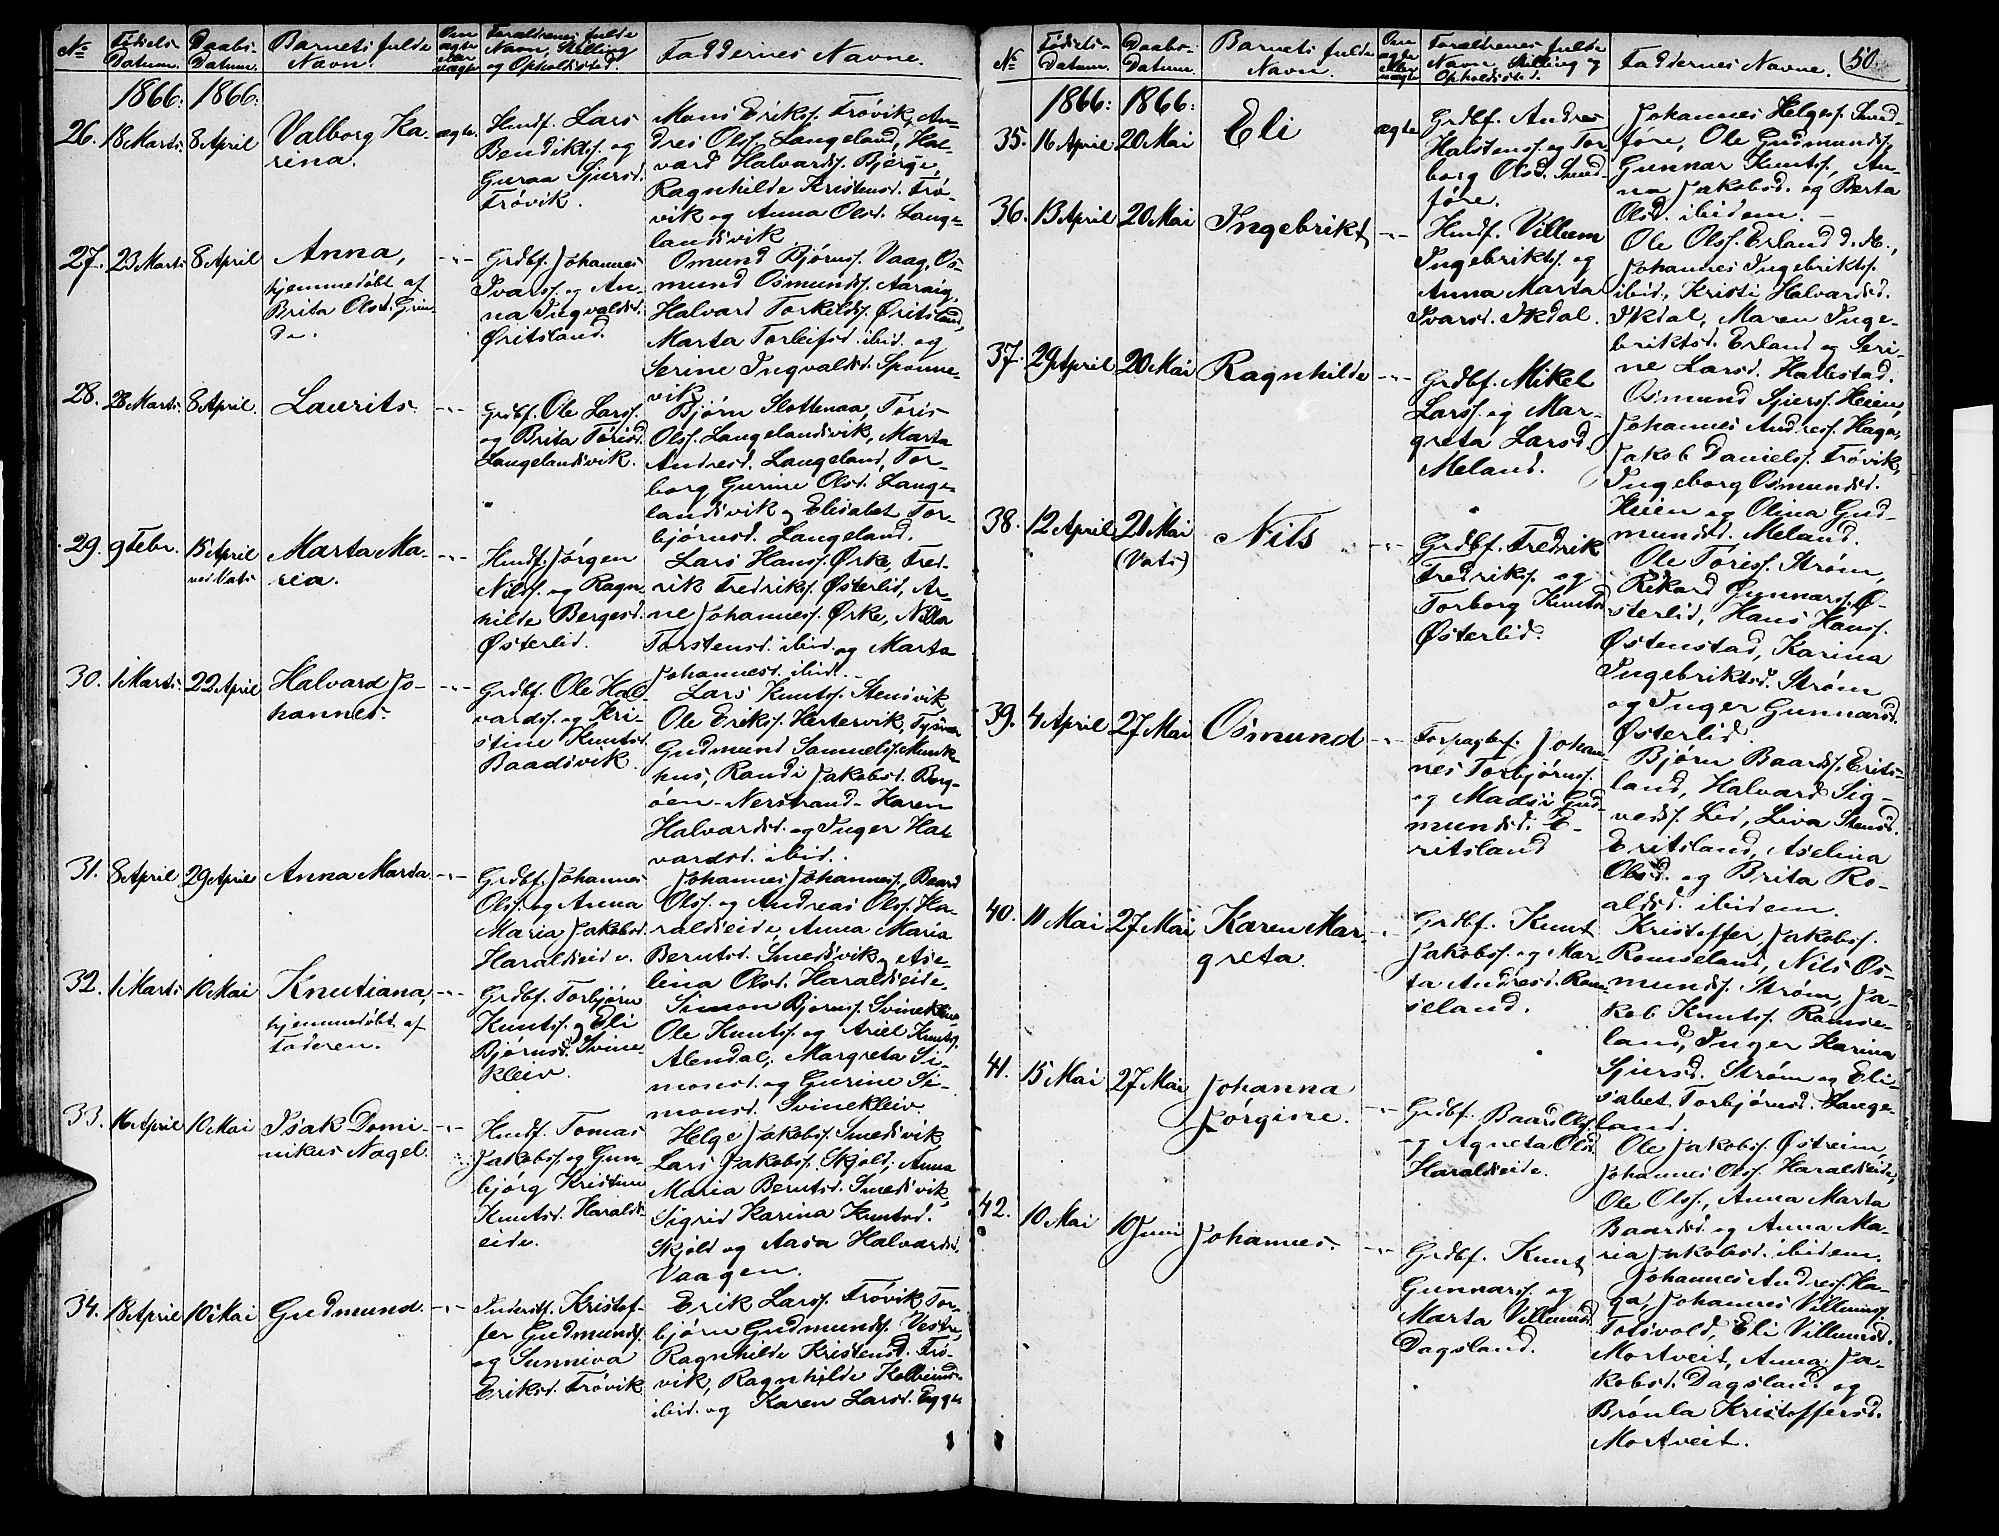 No
Fødsels-
Datum.
Daabs-
Datum.
Barnets fulde
Navn.
Om
ægte
eller
uægte
Forældrenes fulde
Navn, Stilling
og Opholdssted.
Faddernes Navne.
1866: 1866:
26. 18 Marts 8 April
Valborg Ka-
rina.
ægte
Husmf. Lars
Bendiktss. og
Guraa Sjursd.
Trövik.
Mons Erikss. Trövik, An-
dres Olss. Langeland, Hal-
vard Halvardss. Bjerge,
Ragnhilde Kristensd. Trö-
vik og Anna Olsd. Lange-
landsvik
27. 23 Marts 8 April
Anna,
hjemmedøbt af
Brita Olsd. Grin-
de.
Grdbf. Johannes
Ivarss. og An-
na Ingvaldsd.
Øritsland.
Omund Bjørnss. Vaag, Os-
mund Osmundss. Aaraig,
Halvard Torkeldss. Øritsland,
Marta Torleifsd. ibid. og
Serine Ingvaldsd. Sponne-
vik
28. 28 Marts 8 April
Laurits.
Grdbf. Ole Larss.
og Brita Törisd.
Langelandsvik.
Bjørn Slottenaa, Töris
Olss. Langelandsvik, Marta
Andresd. Langeland, Tor-
borg Gurine Olsd. Lange-
landsvik og Elisabet Tor-
bjørnsd. Langeland.
29. 9 Febr. 15 April
ved Vats
Marta Ma-
ria.
Husmf. Jørgen
Nilss. og Ragn-
hilde Bergesd.
Østerlid.
Lars Hanss. Ørke, Fred-
rik Fredrikss. Østerlid, Ar-
ne Johanness. Ørke, Nilla
Torstensd. ibid. og Marta
Johannesd. ibid.
30. 1 Marts 22 April
Halvard Jo-
hannes.
Grdbf. Ole Hal-
vardss. og Kri-
stine Knutsd.
Baadsvik.
Lars Knutss. Stensvik
Ole Erikss. Hertervik, Tysvær
Gudmund Samuelss. Munke-
hus, Randi Jakobsd. Borg-
øen - Nerstrand - Karen
Halvardsd. og Inger Hal-
vardsd. ibid.
31. 8 April 29 April
Anna Marta
Grdbf. Johannes
Olss. og Anna
Maria Jakobsd.
Haraldseide.
Johannes Johanness., Baard
Olss. og Andreas Olss. Ha-
raldseide, Anna Maria
Berntsd. Smedsvik, og Ase-
lina Olsd. Haraldseide.
32. 1 Marts 10 Mai
Knutiana,
hjemmedøbt af
Faderen.
Grdbf. Torbjørn
Knutss. og Eli
Bjørnsd. Svine-
kleiv.
Simon Bjørnss. Svinekleiv
Ole Knutss. og Ariel Knutss.
Alendal, Margreta Si-
monsd. og Gurine Si-
monsd. Svinekleiv.
33. 16 April 10 Mai
Isak Domi-
nikus Nagel.
Husmf. Tomas
Jakobss. og Gun-
bjørg Kristine
Knutsd. Haralds-
eide.
Helge Jakobss. Smedsvik
Lars Jakobss. Skjold, Anna
Maria Berntsd. Smedsvik,
Sigrid Karina Knutsd.
Skjold og Aasa Halvardsd.
Vaagen.
34. 18 April 10 Mai
Gudmund.
Inderstf. Kristof-
fer Gudmundss.
og Sunniva
Eriksd. Trövik
Erik Larss. Trövik, Tor-
bjørn Gudmundss. Vestre,
Ragnhilde Kristensd. Trö-
vik, Ragnhilde Kolbeinsd.
ibid. og Karen Larsd. Egge
No
Fødsels-
Datum.
Daabs-
Datum.
Barnets fulde
Navn.
Om
ægte
eller
uægte
Forældrenes fulde
Navn, Stilling og
Opholdssted.
Faddernes Navne.
50.
1866: 1866:
35. 16 April 20 Mai
Eli
ægte
Grdbf. Andres
Halstenss. og Tor-
borg Olsd. Sund-
føre.
Johannes Helgess. Sund-
føre, Ole Gudmundss.
Gunnar Knutss., An-
na Jakobsd. og Berta
Olsd. ibidem.
36. 13 April 20 Mai
Ingebrikt
Husmf. Villum
Ingebriktss. og
Anna Marta
Ivarsd. Ilsdal.
Ole Olss. Erland d. Æ.,
Johannes Ingebriktss.
ibid., Kristi Halvardsd.
Ilsdal, Maren Inge-
briktsd. Erland og Seri-
ne Larsd. Hallestad.
37. 29 April 20 Mai
Ragnhilde
Grdbf. Mikel
Larss. og Mar-
greta Larsd.
Meland.
Osmund Sjurss. Heien,
Johannes Andress. Haga,
Jakob Danielss. Trövik,
Ingeborg Osmundsd.
Heien og Olina Gud-
mundsd. Meland.
38. 12 April 21 Mai
(Vats)
Nils
Grdbf. Fredrik
Fredrikss. og
Torborg Knutsd.
Østerlid.
Ole Töriss. Strøm,
Rikard Gunnarss. Ø-
sterlid, Hans Hanss.
Østenstad, Karina
Ingebriktsd. Strøm
og Inger Gunnarsd.
Østerlid.
39. 4 April 27 Mai
Osmund
Forpagtf. Johan-
nes Torbjørnss.
og Madsi Gud-
mundsd. E-
ritsland
Bjørn Baardss. Erits-
land, Halvard Sig-
vedss. Lid, Liva Stensd.
Eritsland, Aselina
Olsd. og Brita Ro-
aldsd. ibidem.
40. 11 Mai 27 Mai
Karen Mar-
greta.
Grdbf. Knut
Jakobss. og Mar-
ta Andresd. Ram-
seland.
Kristoffer Jakobss.
Romseland, Nils Os-
mundss. Strøm, Ja-
kob Knutss. Ramse-
land, Inger Karina
Sjursd. Strøm og Eli-
sabet Torbjørnsd. Lange-
land.
41. 15 Mai 27 Mai
Johanna
Jørgine.
Grdbf. Baard Olss.
og Agneta Olsd.
Haraldseide.
Ole Jakobss. Østreim,
Johannes Olss. Haraldseide,
Ole Olss., Anna Marta
Baardsd. og Anna Ma-
ria Jakobsd. ibidem.
42. 10 Mai 10 Juni
Johannes.
Grdbf. Knut
Gunnarss. og
Marta Villumsd.
Dagsland.
Johannes Andress. Ha-
ga, Johannes Villumss.
Totsvold, Eli Villumsd.
Mortveit, Anna Ja-
kobsd. Dagsland og
Brönla Kristoffersd.
Mortveit.